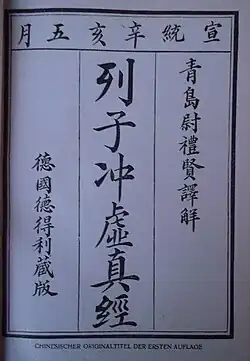 宣統辛亥五月
青島尉禮賢譯解
列子冲虛真經
德國德得利藏版
CHINESISCHER ORIGINALTITEL DER ERSTEN AUFLAGE